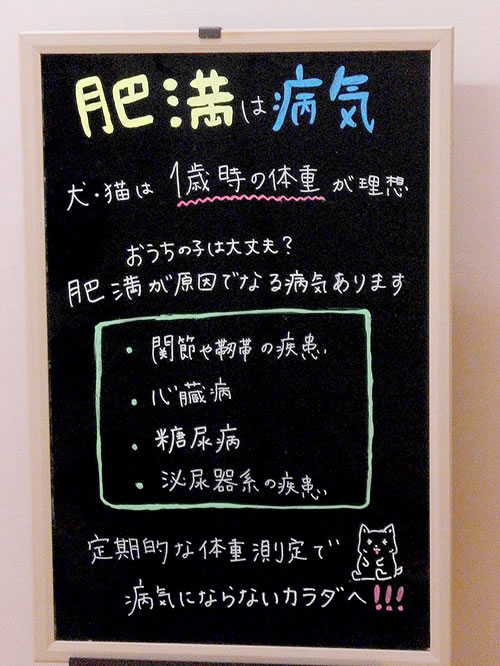 肥満は病気
犬・猫は1歳時の体重が理想
おうちの子は大丈夫？
肥満が原因でなる病気あります
・関節や靭帯の疾患
・心臓病
・糖尿病
・泌尿器系の疾患
定期的な体重測定で
病気にならないカラダへ!!!